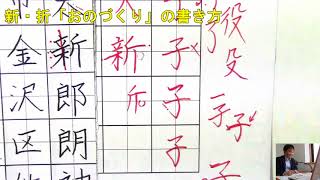 新・折「おのづくり」の書き方
役
殳
子子
子
子
子
子
新
斤
新郎朗
金沢区